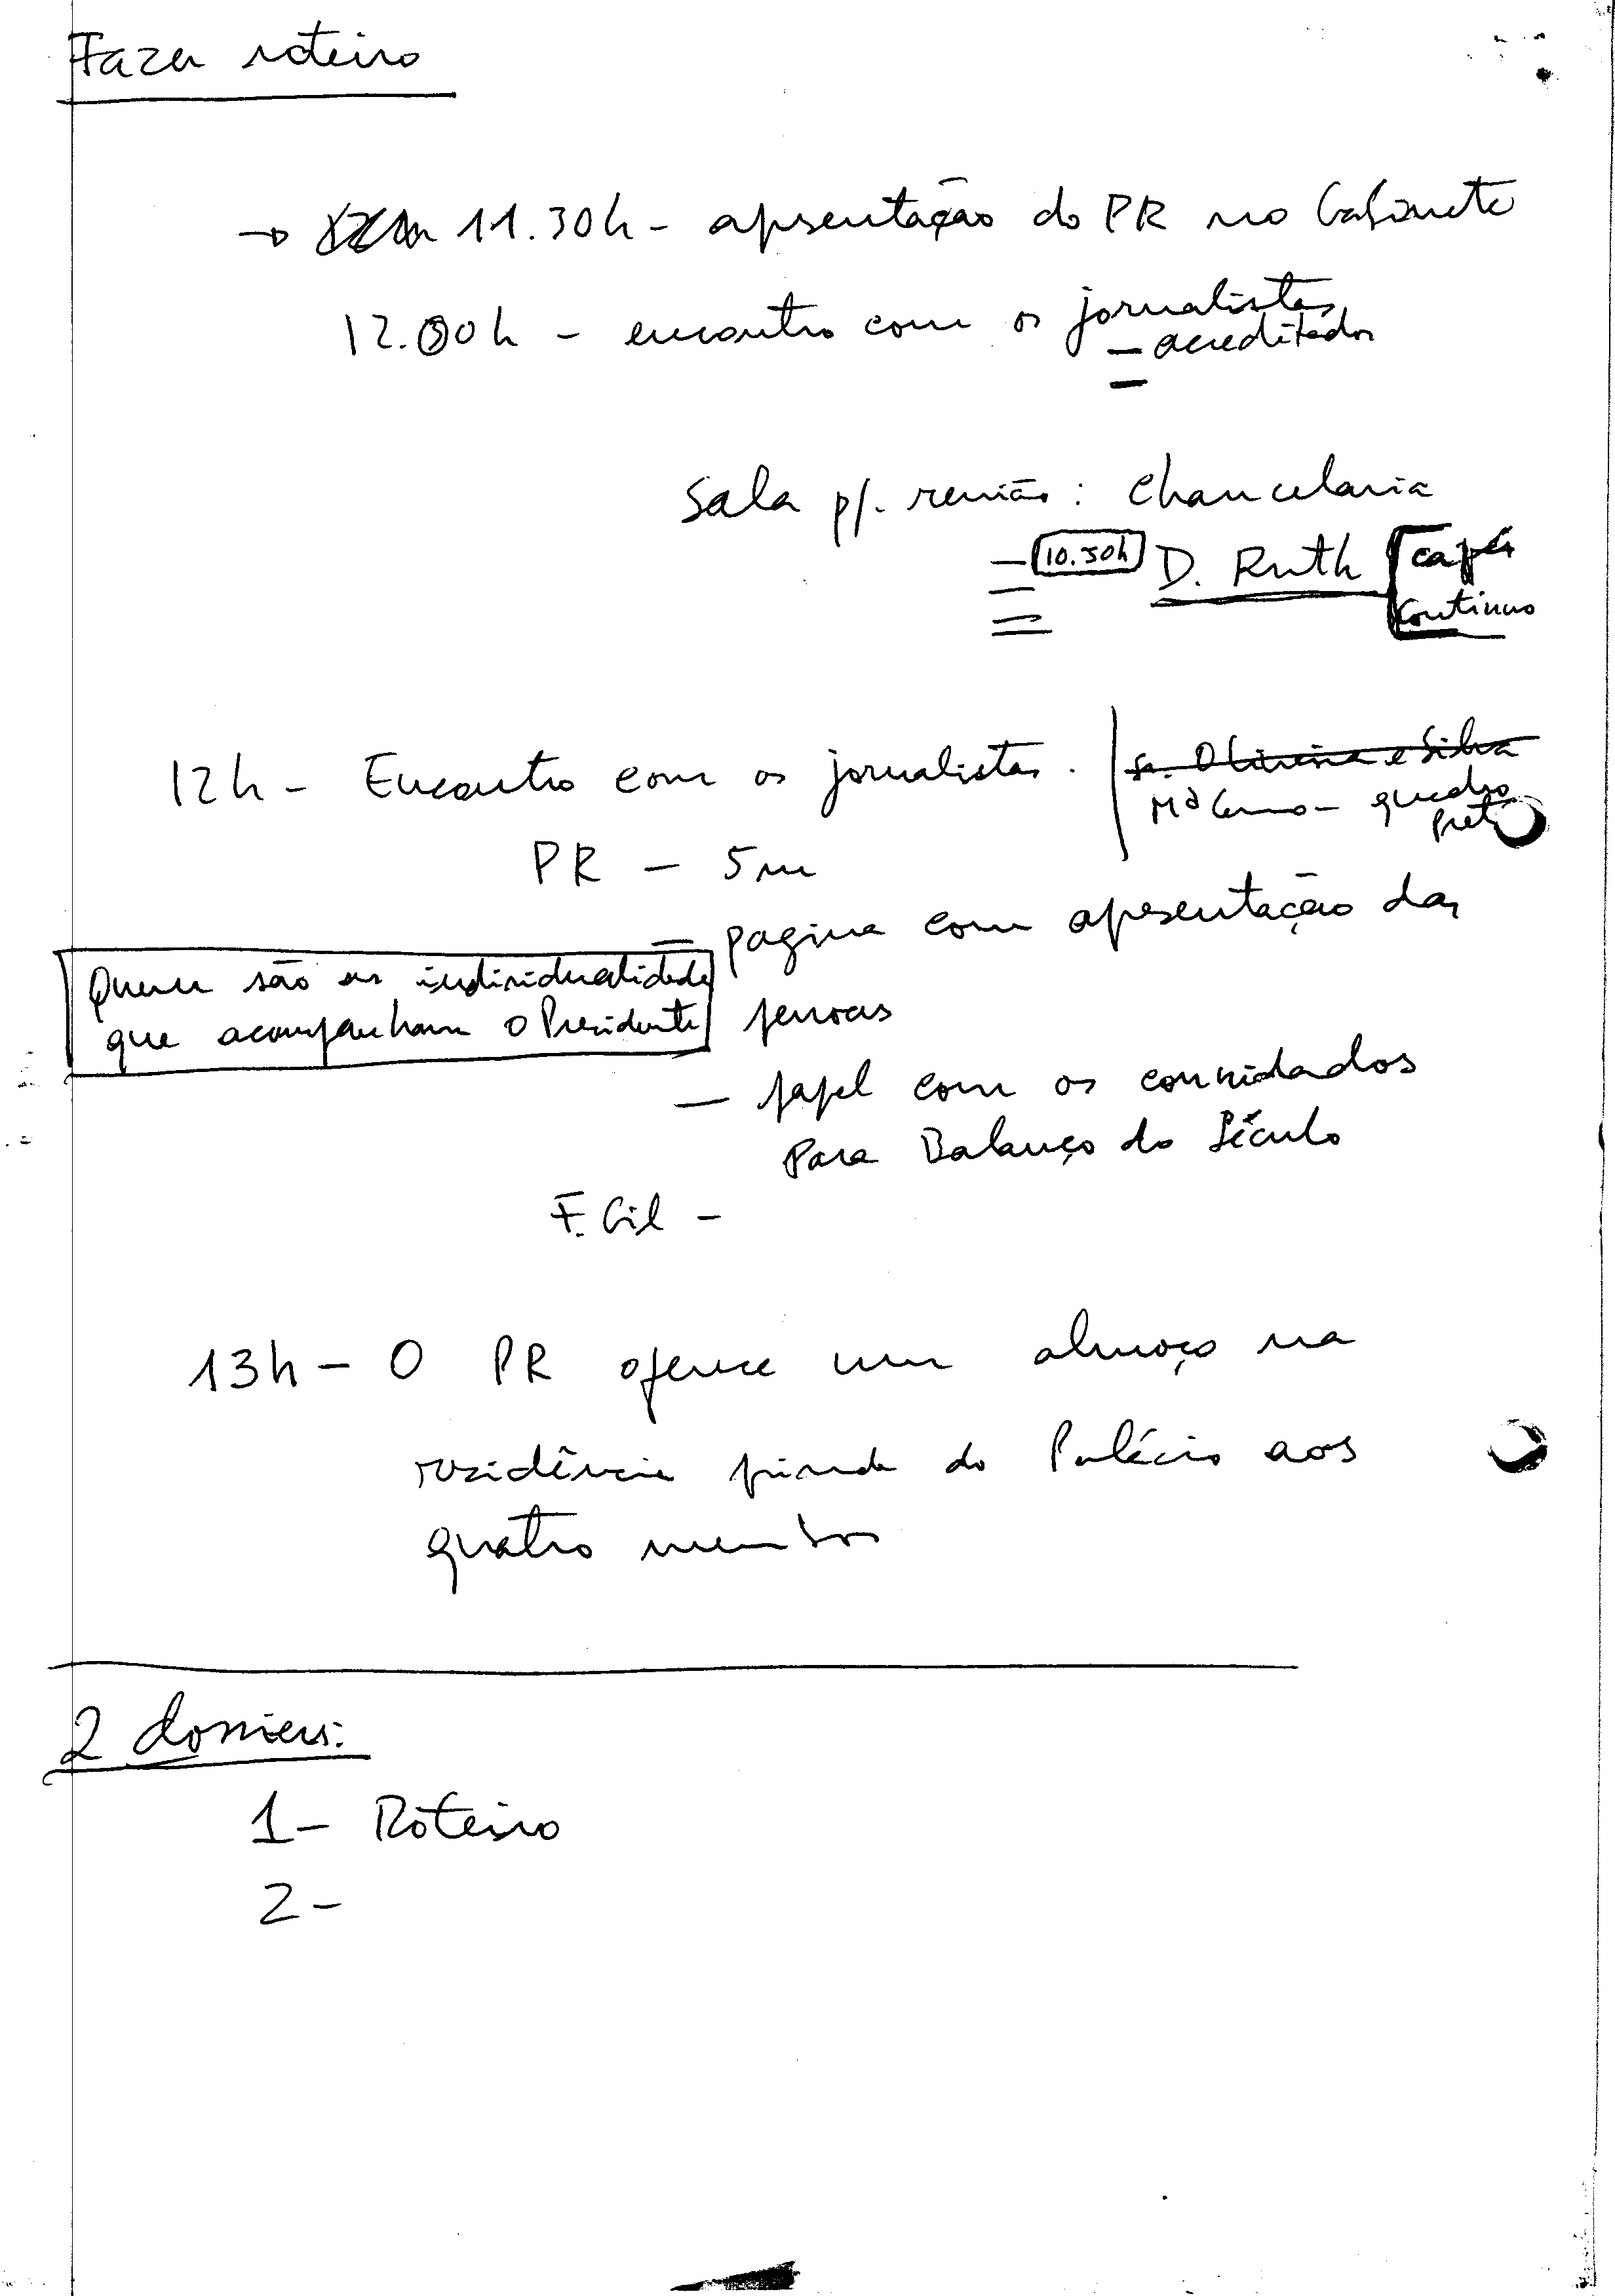 Fazer roteiro
→ 11.30h - apresentação do PR no Gabinete
12.00h - encontro com os jornalistas
— acreditados
Sala p/. reunião: Chancelaria
— 10.30h D. Ruth cafés
Contínuo
12h - Encontro com os jornalistas.
Sr. Oliveira e Silva
Mª - quadro
preto
PR - 5m
— pagina com apresentação das
Quem são as individualidades
que acompanham o Presidente
pessoas
— papel com os convidados
para Balanço do Século
F. Gil -
13h - O PR oferece um almoço na
residência privada do Palácio aos
quatro membros
2 dossiers:
1- Roteiro
2-